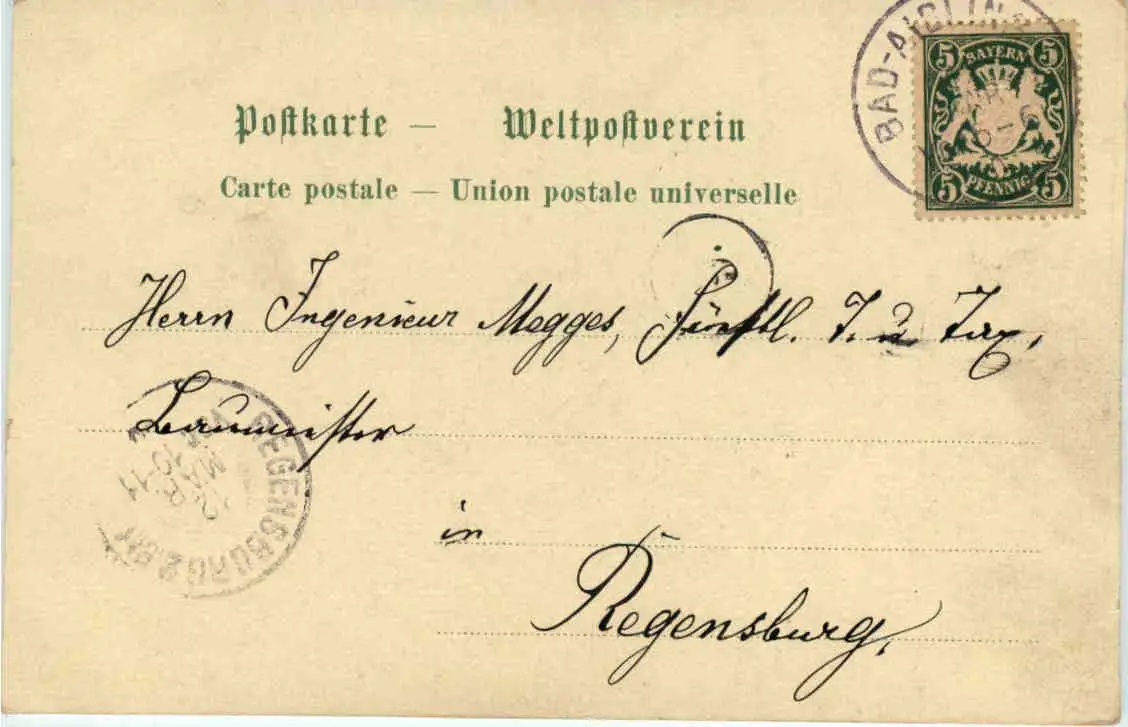 BAD-AIBLIN
5 BAYERN 5
5 PFENNIG 5
Postkarte — Weltpostverein
Carte postale — Union postale universelle
Herrn Ingenieur Megges, Fürstl. T. u. Tax,
Baumeister
in
Regensburg,
REGENSBURG 2 BH
12
MAI
10-11